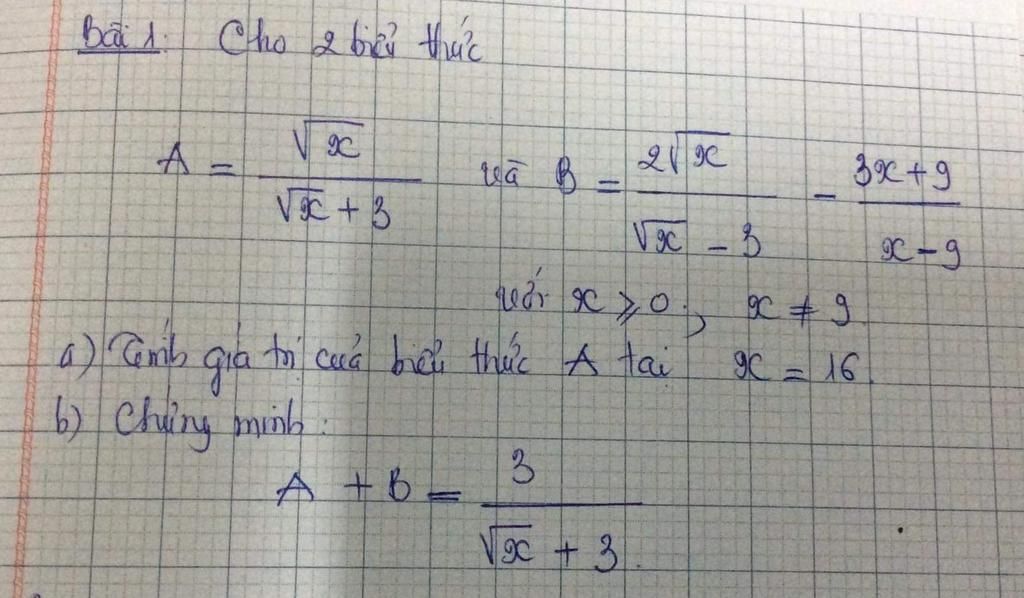 Bài 1. Cho 2 biểu thức
A = √x / (√x + 3) và B = 2√x / (√x - 3) - (3x + 9) / (x - 9)
với x ⩾ 0 ; x ≠ 9
a) Tính giá trị của biểu thức A tại x = 16.
b) Chứng minh:
A + B = 3 / (√x + 3).